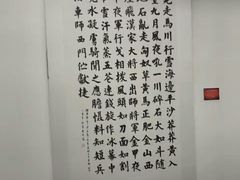 走馬川行雪海邊平沙莽莽黃入
月風夜吼一川碎石大如斗隨
石亂走匈奴草黃馬正肥金山西
塵飛漢家大將西出師將軍金甲夜
夜軍行戈相撥風頭如刀面如割
雪汗氣蒸五花連錢旋作冰幕中
水凝虜騎聞之應膽懾料知短兵
車師西門佇獻捷